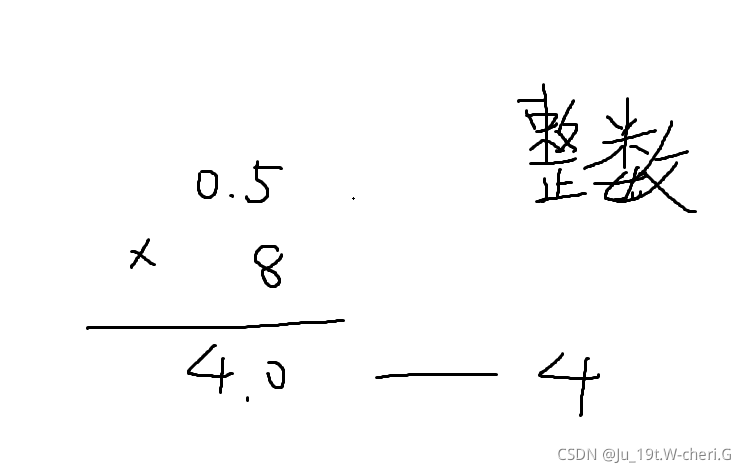 整数
0.5
× 8
4.0 — 4
CSDN @Ju_19t.W-cheri.G